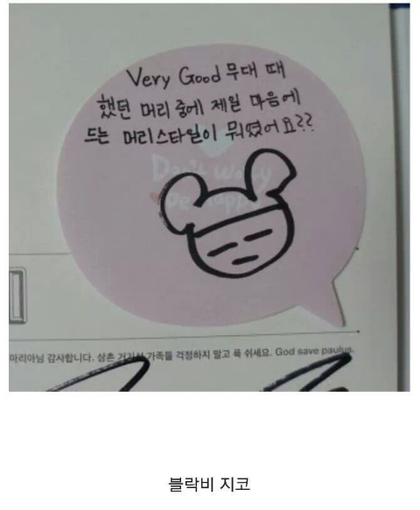 Very Good 무대 때
했던 머리 중에 제일 마음에
드는 머리스타일이 뭐였어요??
Don't worry
be happy
마리아님 감사합니다. 삼촌 거기서 가족들 걱정하지 말고 푹 쉬세요. God save paulus.
블락비 지코